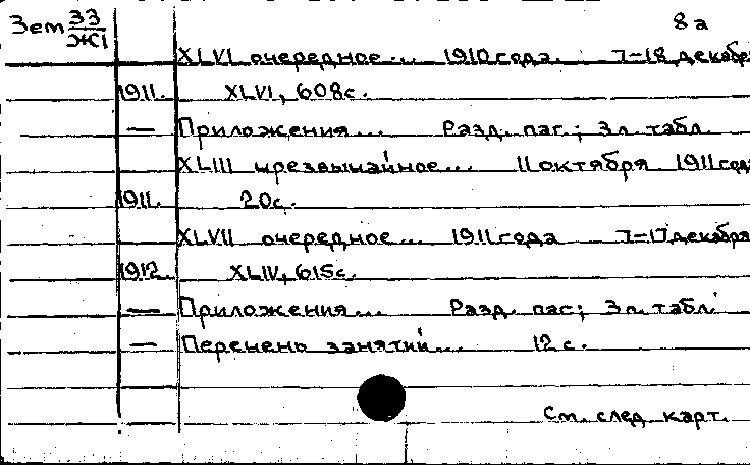 Зем 33/Ж1 8а
XLVI очередное... 1910 года. 7-18 декабря
1911. XLVI, 608 с.
— Приложения... Разд. паг.; 3 л. табл.
XLIII чрезвычайное... 11 октября 1911 года
1911. 20 с.
XLVII очередное... 1911 года 7-17 декабря
1912. XLIV, 615 с.
— Приложения... Разд. паг; 3 л. табл.
— Перечень занятий... 12 с.
См. след. карт.